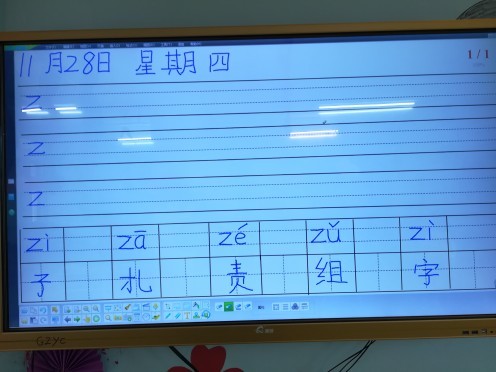 11月28日 星期四
1/1
z
z
z
zi zā zé zǔ zì
子 扎 责 组 字
GZYC